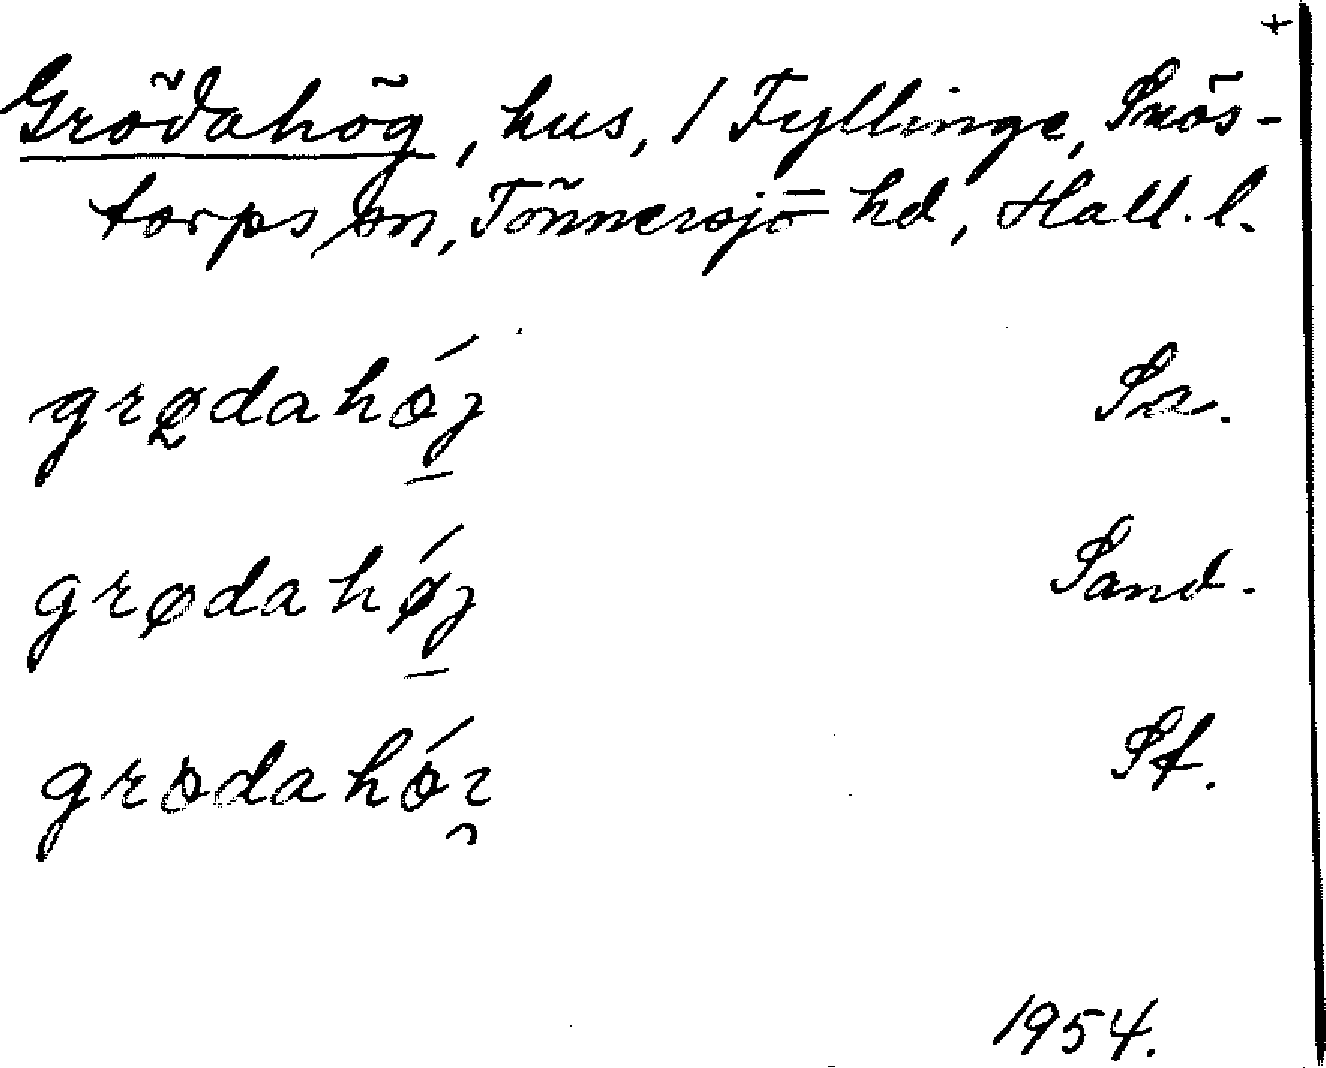 +
Grödahög, hus, 1 Fyllinge, Snös-
torps sn, Tönnersjö hd, Hall. l.
grødahój Sa.
grødahǿj Sand.
grödahóı̯ Sf.
1954.